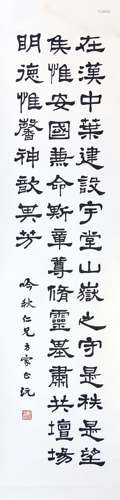 在漢中葉建設宇堂山嶽之守是秩是望
侯惟安國兼命斯章尊脩靈基肅共壇場
明德惟馨神歆其芳
吟秋仁兄方家